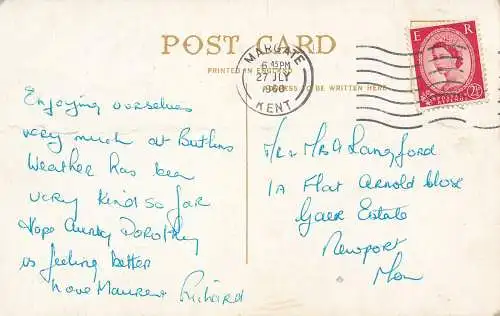 POST CARD
PRINTED IN ENGLAND
ADDRESS TO BE WRITTEN HERE
MARGATE
6 45 PM
27 JLY
1960
KENT
E R
2½D
Enjoying ourselves
very much at Butlins
Weather has been
very kind so far
Hope Aunty Dorothy
is feeling better
Love Maureen Richard
Mr & Mrs A Langford
1A Flat Arnold Close
Gaer Estate
Newport
Mon